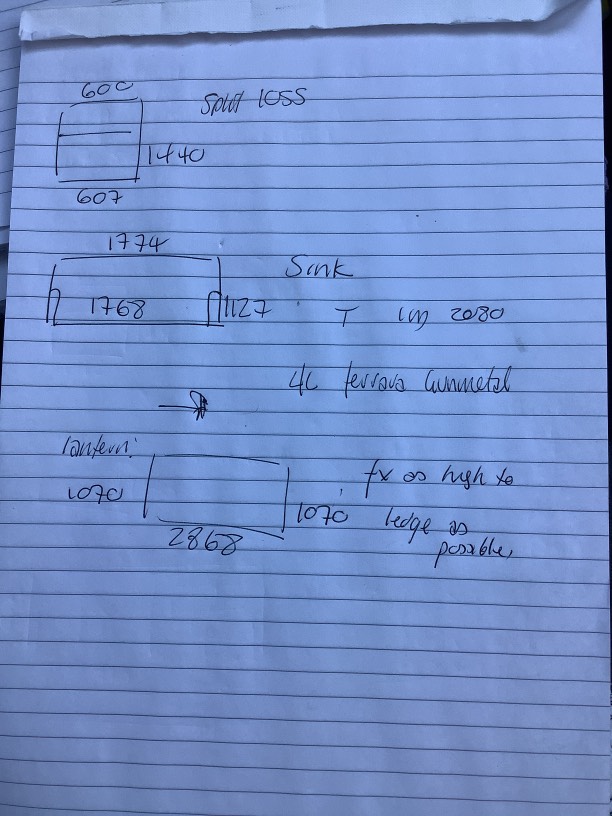 600
Split 1055
1440
607
1774
Sink
1768
1127
T
2080
Gunmetal
lantern:
1070
fix as high to
1070
ledge as
2868
possible,